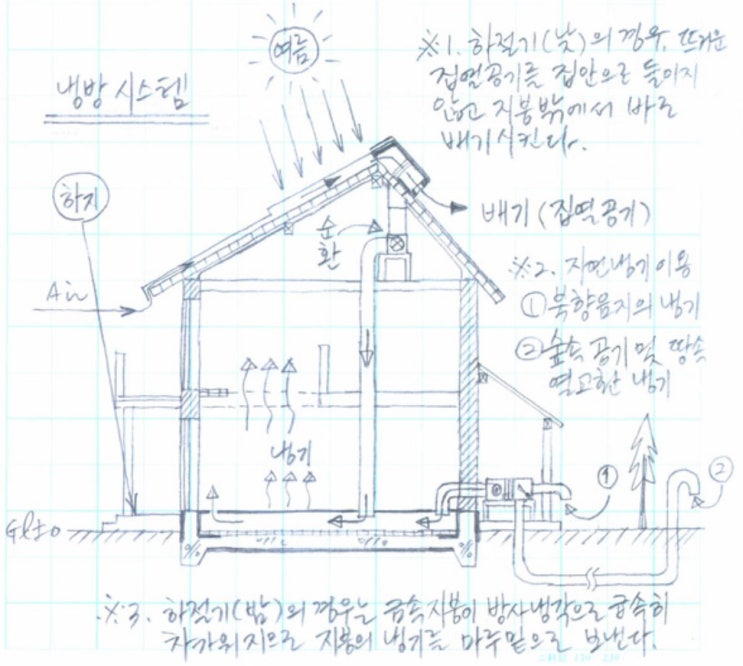 여름
냉방 시스템
※1. 하절기(낮)의 경우, 뜨거운
집열공기를 집안으로 들이지
않고 지붕밖에서 바로
배기시킨다.
하지
배기 (집열공기)
순환
※2. 자연냉기 이용
Air
① 북향음지의 냉기
② 숲속 공기 및 땅속
열교환 냉기
냉기
①
②
GL±0
※3. 하절기(밤)의 경우는 금속지붕이 방사냉각으로 급속히
차가워지므로 지붕의 냉기를 마루밑으로 보낸다.